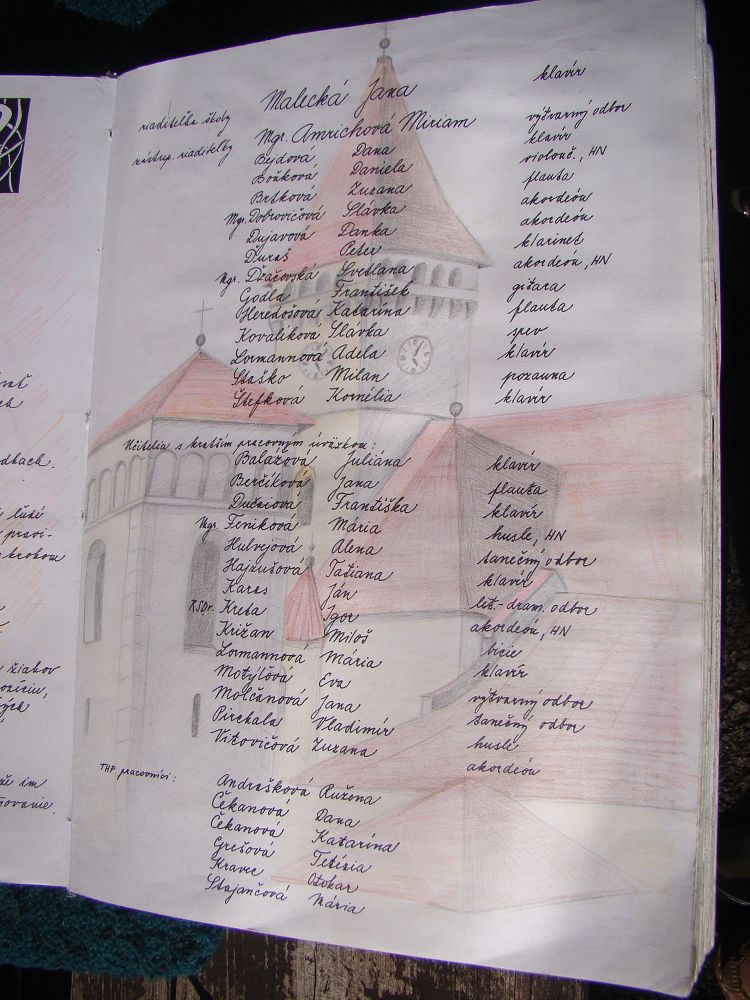 rať
ch
dbach.
ľudí
pravi-
krokom
žiakov
pozícií,
ných
že im
ovanie.
riaditeľka školy Malecká Jana klavír
zástup. riaditeľky Mgr. Amrichová Miriam výtvarný odbor
Bejdová Dana klavír
Boňková Daniela violonč., HN
Brtková Zuzana flauta
Mgr. Dobrovičová Slávka akordeón
Dujavová Danka akordeón
Ďuraš Peter klarinet
Mgr. Dzačovská Svetlana akordeón, HN
Godla František gitara
Heredošová Katarína flauta
Kovalíková Slávka spev
Lormannová Adela klavír
Staško Milan pozauna
Štefková Kornélia klavír
Učitelia s kratším pracovným úväzkom:
Balážová Juliána klavír
Berčíková Jana flauta
Františka klavír
Mgr. Feníková Mária husle, HN
Hulvejová Alena tanečný odbor
Hajzušová Tatiana klavír
Karas Ján lit.-dram. odbor
RSDr. Kreta Igor akordeón, HN
Križan Miloš bicie
Lormannová Mária klavír
Motýľová Eva výtvarný odbor
Molčanová Jana tanečný odbor
Pirchala Vladimír husle
Vitovičová Zuzana akordeón
THP pracovníci:
Andrašková Ružena
Čekanová Dana
Čekanová Katarína
Grešová Terézia
Kravec Otokar
Stajančová Mária